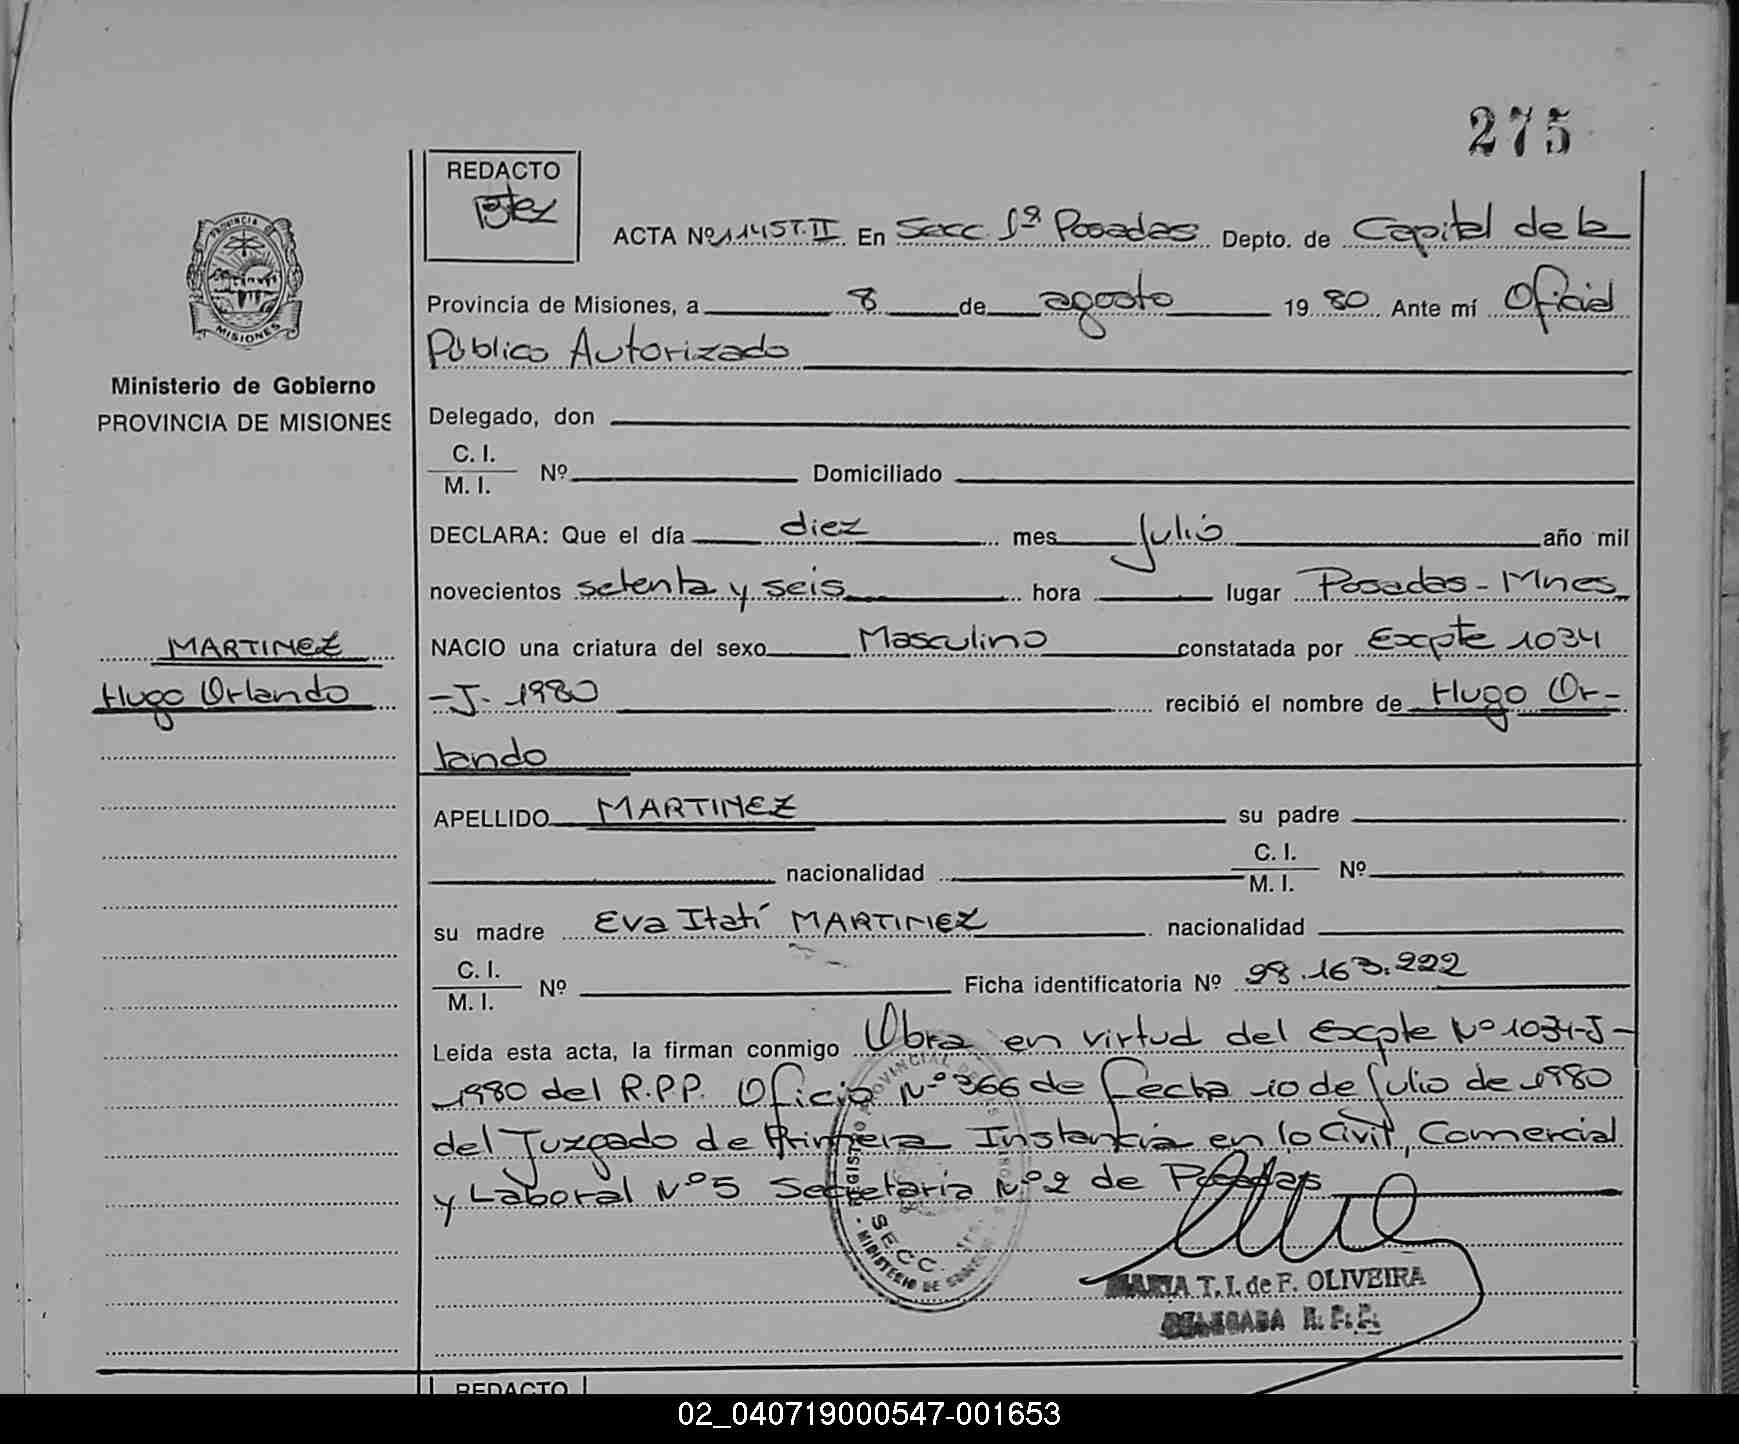 275
REDACTO
ACTA Nº 1145 T. II En Secc. 1ª Posadas Depto. de Capital de la
Provincia de Misiones, a 8 de agosto 1980 Ante mí Oficial
Público Autorizado
PROVINCIA DE
MISIONES
Ministerio de Gobierno
PROVINCIA DE MISIONES
Delegado, don
C. I.
M. I. Nº Domiciliado
DECLARA: Que el día diez mes Julio año mil
novecientos setenta y seis hora lugar Posadas - Mnes
MARTINEZ
Hugo Orlando
NACIO una criatura del sexo Masculino constatada por Excpte 1034
-J- 1980 recibió el nombre de Hugo Or-
lando
APELLIDO MARTINEZ su padre
nacionalidad C. I.
M. I. Nº
su madre Eva Itatí MARTINEZ nacionalidad
C. I.
M. I. Nº Ficha identificatoria Nº 98.163.222
Leída esta acta, la firman conmigo Obra en virtud del Excpte Nº 1034-J-
1980 del R.P.P. Oficio Nº 366 de fecha 10 de Julio de 1980
del Juzgado de Primera Instancia en lo Civil, Comercial
y Laboral Nº 5 Secretaria Nº 2 de Posadas
REGISTRO PROVINCIAL DE
SECC. 1ra.
MINISTERIO DE GOBIERNO
MARIA T. I. de F. OLIVEIRA
DELEGADA R. P. P.
REDACTO
02_040719000547-001653